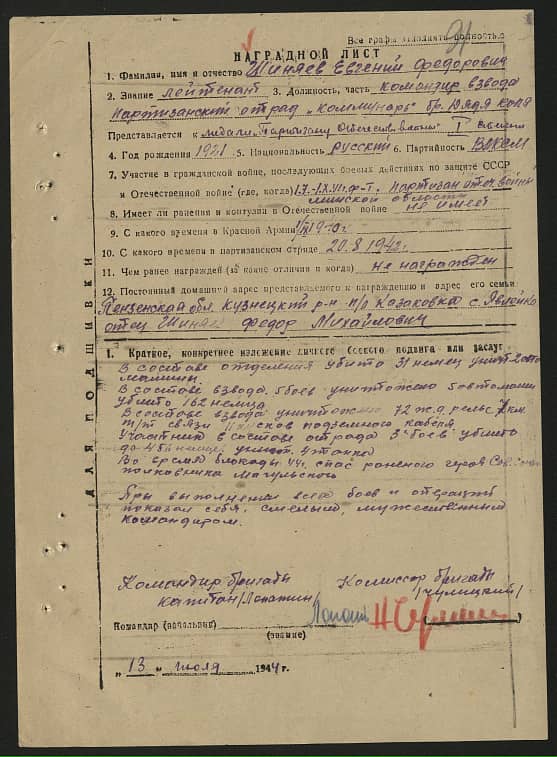 Все графы заполнять полностью
НАГРАДНОЙ ЛИСТ
1. Фамилия, имя и отчество Шиняев Евгений Федорович
2. Звание лейтенант 3. Должность, часть командир взвода
Партизанский отряд „Коммунар"
Представляется к медали „Партизану Отечественной I степени
4. Год рождения 1921 5. Национальность русский 6. Партийность ВЛКСМ
7. Участие в гражданской войне, последующих боевых действиях по защите СССР
и Отечественной войне (где, когда) партизан отеч. войны
минской области
8. Имеет ли ранения и контузии в Отечественной войне не имеет
9. С какого времени в Красной Армии
10. С какого времени в партизанском отряде 20.8.1942г.
11. Чем ранее награжден (за какие отличия и когда) не награжден
12. Постоянный домашний адрес представляемого к награждению и адрес его семьи
Пензенской обл. Кузнецкий р-н п/о Казаковка с. Явлейка
отец Шиняев Федор Михайлович
I. Краткое, конкретное изложение личного боевого подвига или заслуг
В составе отделения убито 31 немец
машины.
В составе взвода 5 боев уничтожено 5 автомашин
убито 162 немца
В составе взвода уничтожено 72 ж.д. рельс
т/т связи подземного кабеля
Участник в составе отряда 3х боев убито
до немцев 4 танка
Во время блокады 44г. спас раненого героя
полковника
При выполнении всех боев и операций
показал себя, смелым, мужественным
командиром.
ДЛЯ ПОДШИВКИ
Командир бригады
капитан /Лопатин/
Комиссар бригады
Командир (начальник)
(звание)
„13" июля 1944 г.